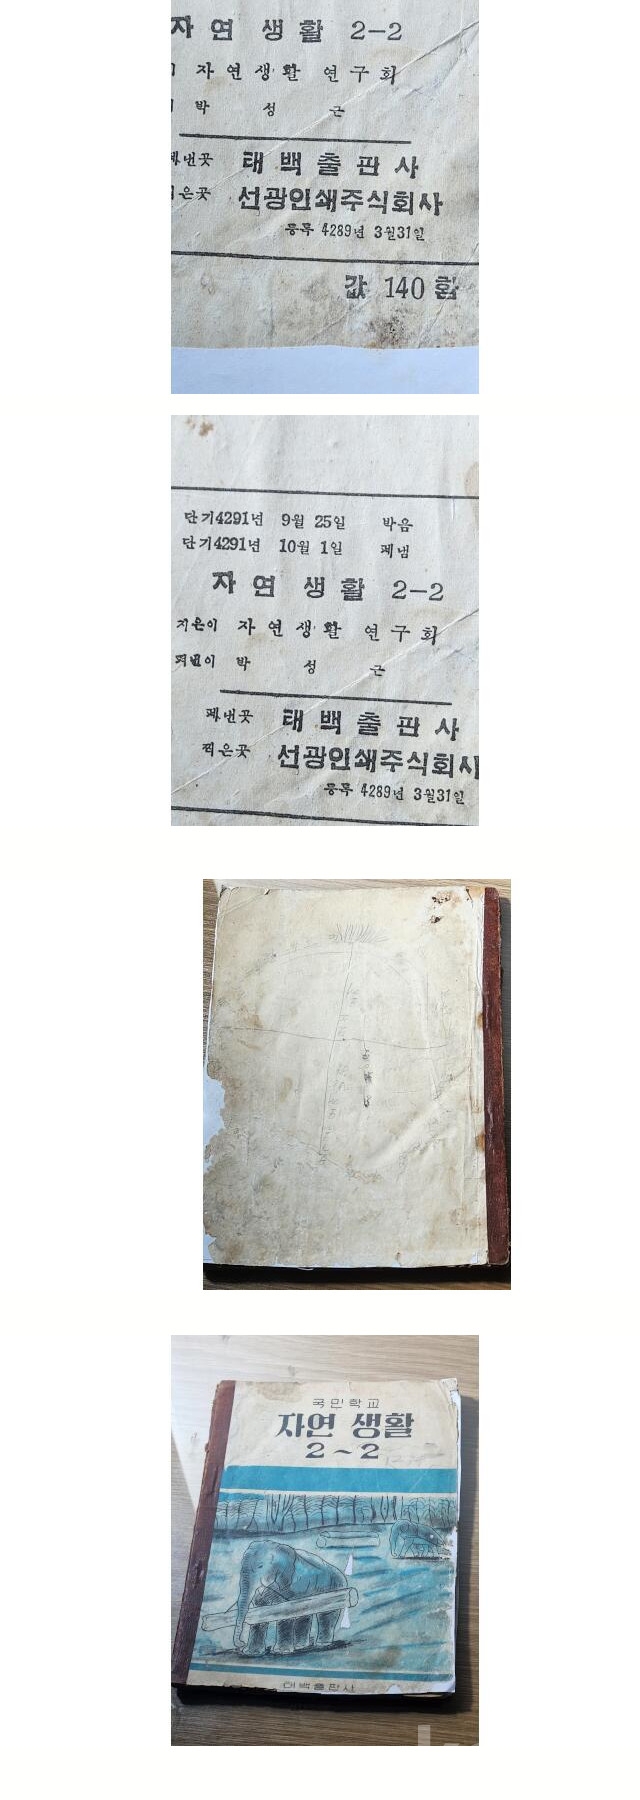 자 연 생 활 2-2
자 연 생 활 연 구 회
박 성 근
펴낸곳 태 백 출 판 사
찍은곳 선광인쇄주식회사
등록 4289년 3월31일
값 140 환
단기4291년 9월 25일 박음
단기4291년 10월 1일 펴냄
자 연 생 활 2-2
지은이 자 연 생 활 연 구 회
펴낸이 박 성 근
펴낸곳 태 백 출 판 사
찍은곳 선광인쇄주식회사
등록 4289년 3월31일
국민학교
자연 생활
2~2
태백출판사